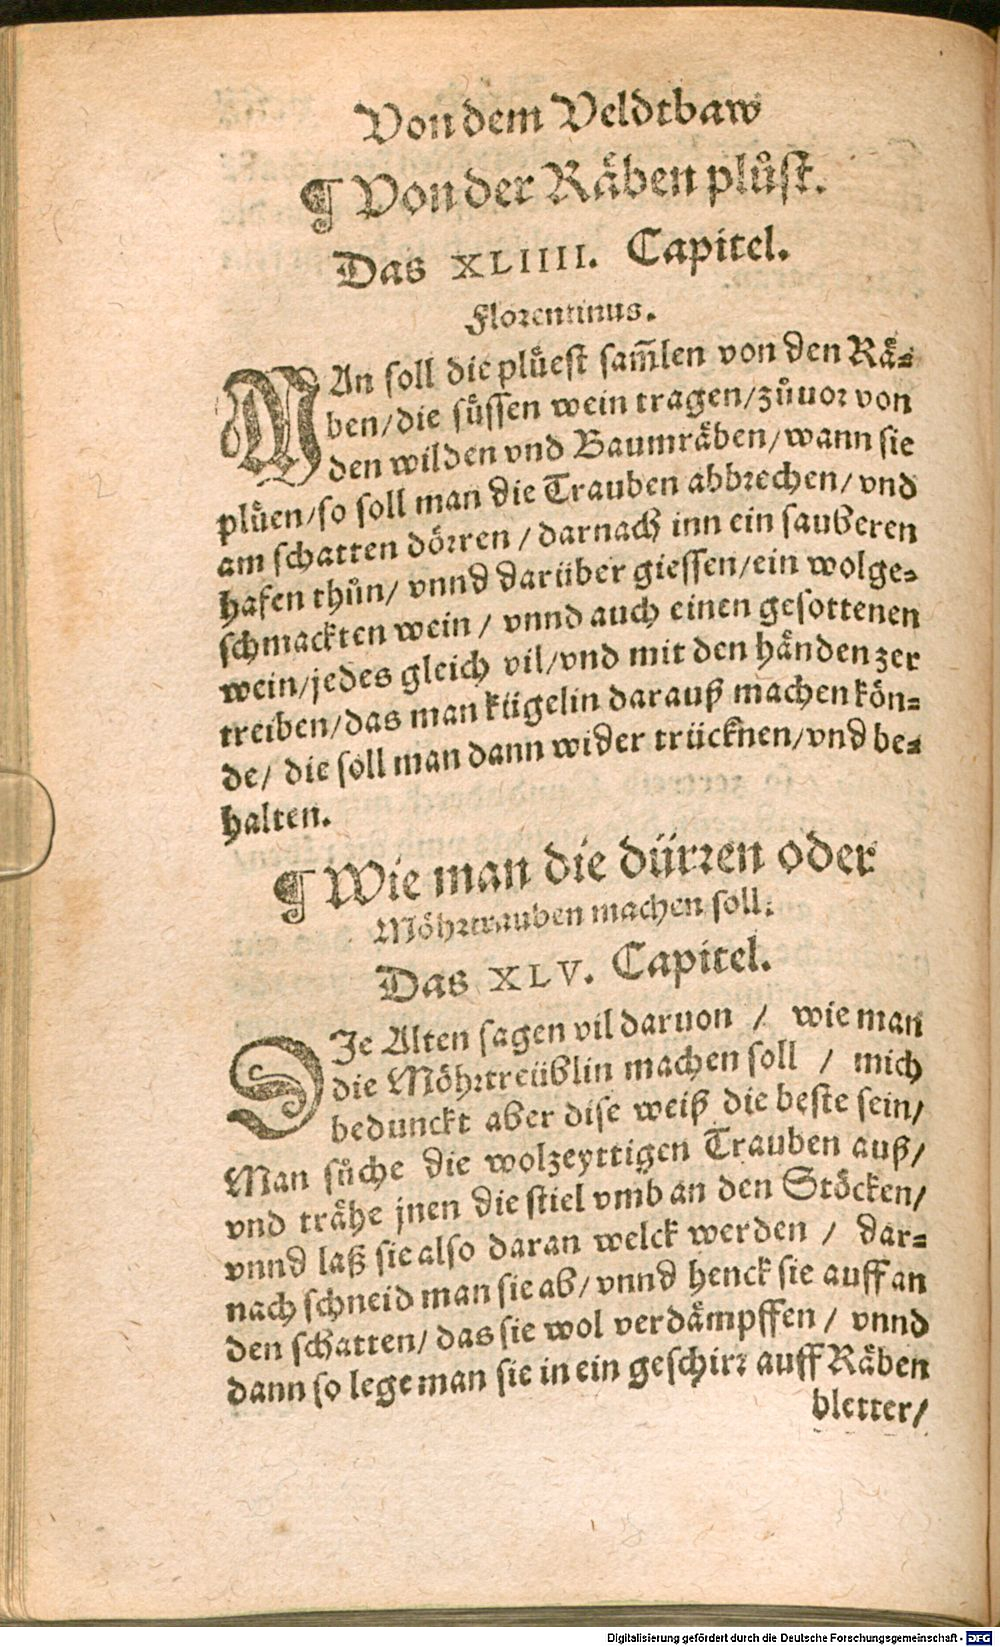 Von dem Veldtbaw
¶ Von der Räben plůst.
Das XLIIII. Capitel.
Florentinus.
MAn soll die plůest sam̃len von den Rä-
ben/die sůssen wein tragen/zůuor von
den wilden vnd Baumräben/wann sie
plůen/so soll man die Trauben abbrechen/vnd
am schatten dörren/darnach inn ein sauberen
hafen thůn/vnnd darüber giessen/ein wolge-
schmackten wein/vnnd auch einen gesottenen
wein/jedes gleich vil/vnd mit den händen zer
treiben/das man kügelin darauß machen kön-
de/die soll man dann wider trücknen/vnd be-
halten.
¶ Wie man die dürren oder
Möhrtrauben machen soll.
Das XLV. Capitel.
DJe Alten sagen vil daruon / wie man
die Möhrtreüblin machen soll / mich
bedunckt aber dise weiß die beste sein/
Man sůche die wolzeyttigen Trauben auß/
vnd trähe jnen die stiel vmb an den Stöcken/
vnnd laß sie also daran welck werden / dar-
nach schneid man sie ab/vnnd henck sie auff an
den schatten/das sie wol verdämpffen/vnnd
dann so lege man sie in ein geschirr auff Räben
bletter/
Digitalisierung gefördert durch die Deutsche Forschungsgemeinschaft - DFG